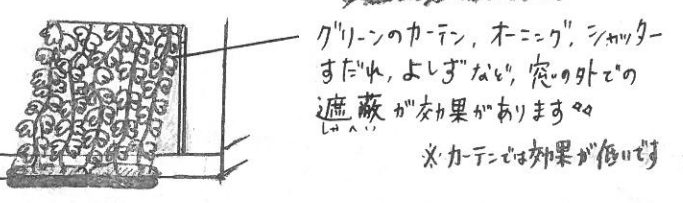 グリーンのカーテン、オーニング、シャッター
すだれ、よしずなど、窓の外での
遮蔽が効果があります
しゃへい
※カーテンでは効果が低いです